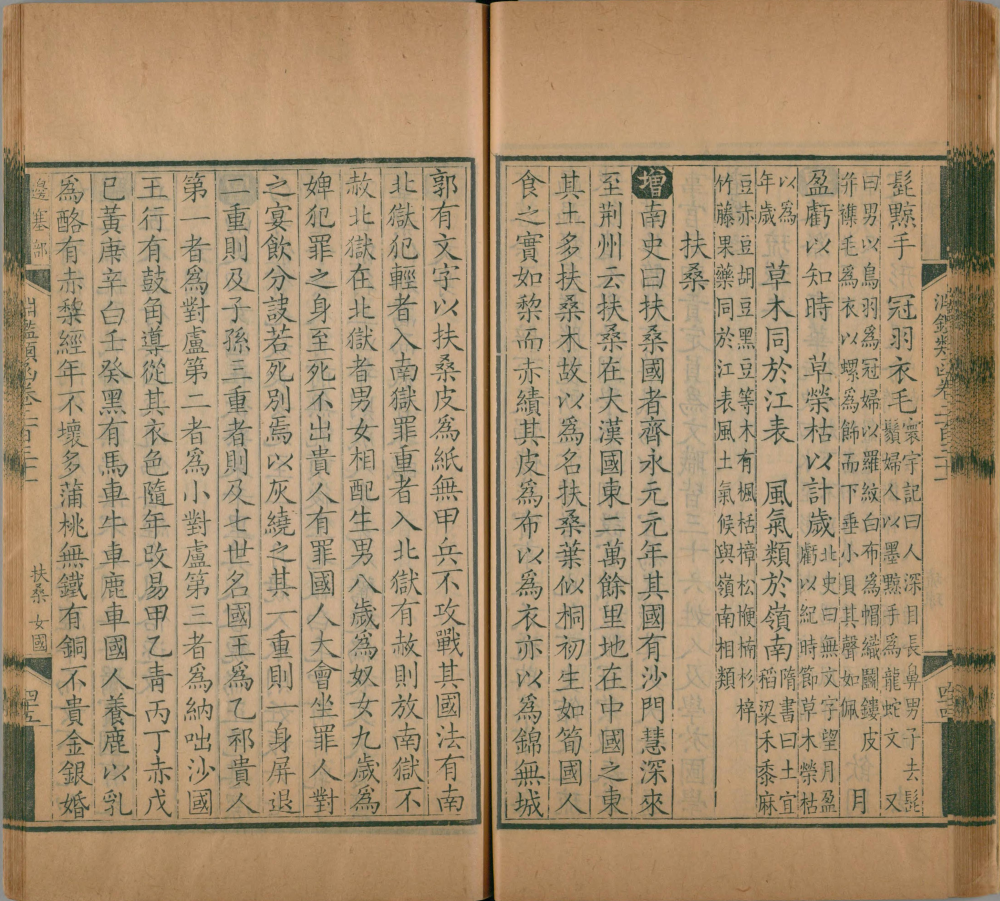 髭黥手　冠羽衣毛
寰宇記曰人深目長鼻男子去髭
鬚婦人以墨黥手為龍蛇文　又
曰男以鳥羽爲冠婦以羅紋白布爲帽織鬬鏤皮
并襍毛爲衣以螺爲飾而下垂小貝其聲如佩　月
盈虧以知時　草榮枯以計歲
北史曰無文字望月盈
虧以紀時節草木榮枯
以爲
年歲
草木同於江表　風氣類於嶺南
隋書曰土宜
稻粱禾黍麻
豆赤豆胡豆黑豆等木有楓栝樟松楩楠杉梓
竹藤果藥同於江表風土氣候與嶺南相類
扶桑
增南史曰扶桑國者齊永元元年其國有沙門慧深來
至荆州云扶桑在大漢國東二萬餘里地在中國之東
其土多扶桑木故以爲名扶桑葉似桐初生如筍國人
食之實如梨而赤績其皮爲布以爲衣亦以爲錦無城
淵鑑類函卷二百三十一
郭有文字以扶桑皮爲紙無甲兵不攻戰其國法有南
北獄犯輕者入南獄罪重者入北獄有赦則放南獄不
赦北獄在北獄者男女相配生男八歲爲奴女九歲爲
婢犯罪之身至死不出貴人有罪國人大會坐罪人對
之宴飲分訣若死別焉以灰繞之其一重則一身屏退
二重則及子孫三重者則及七世名國王爲乙祁貴人
第一者爲對盧第二者爲小對盧第三者爲納咄沙國
王行有鼓角導從其衣色隨年改易甲乙青丙丁赤戊
已黃庚辛白壬癸黑有馬車牛車鹿車國人養鹿以乳
爲酪有赤棃經年不壞多蒲桃無鐵有銅不貴金銀婚
邊塞部
淵鑑類函卷二百三十一
扶桑　女國
四十五